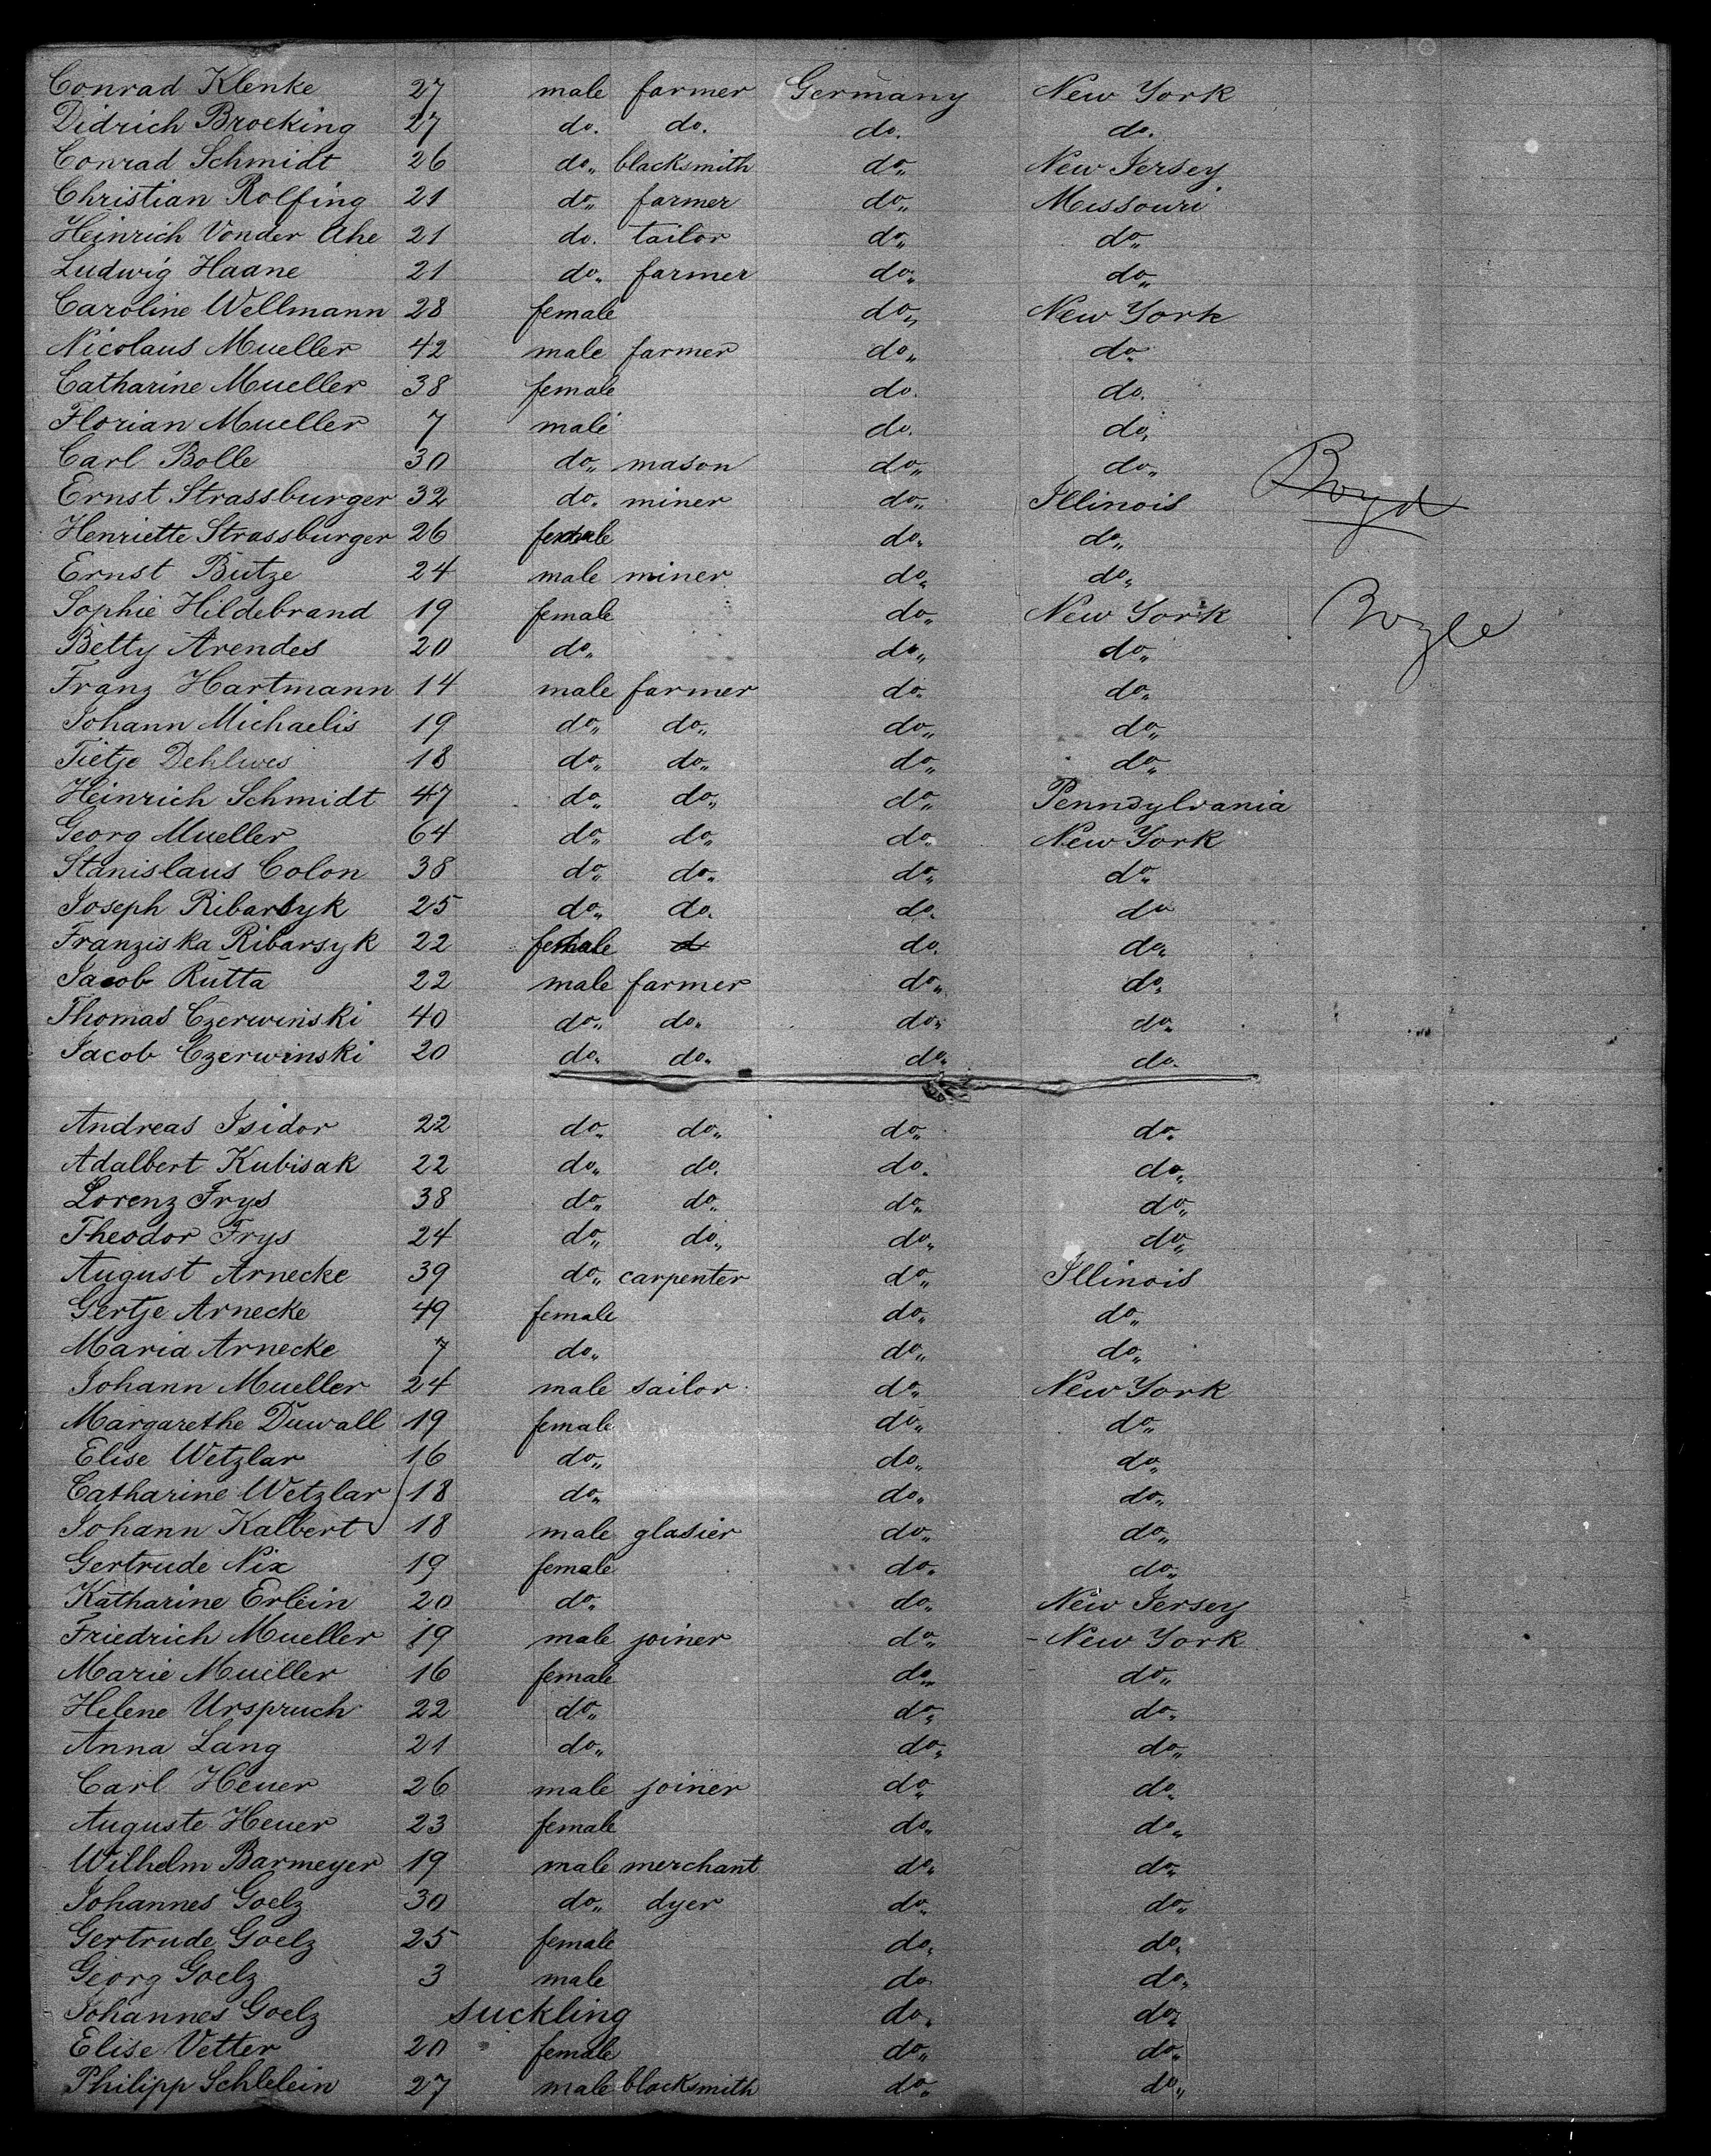 Conrad Klenke 27 male farmer Germany New York
Didrich Brocking 27 do. do. do. do.
Conrad Schmidt 26 do„ blacksmith do„ New Jersey
Christian Rolfing 21 do„ farmer do„ Missouri
Heinrich Vonder Ahe 21 do. tailor do„ do„
Ludwig Haane 21 do„ farmer do„ do„
Caroline Wellmann 28 female do„ New York
Nicolaus Mueller 42 male farmer do„ do„
Catharine Mueller 38 female do. do.
Florian Mueller 7 male do. do.
Carl Bolle 30 do„ mason do„ do„
Boyd
Ernst Strassburger 32 do. miner do„ Illinois
Henriette Strassburger 26 female do„ do„
Ernst Butze 24 male miner do„ do„
Sophie Hildebrand 19 female do„ New York Boyle
Betty Arendes 20 do„ do„ do„
Franz Hartmann 14 male farmer do„ do„
Johann Michaelis 19 do„ do„ do„ do„
Tietje Dehlwes 18 do„ do„ do„ do„
Heinrich Schmidt 47 do„ do„ do„ Pennsylvania
Georg Mueller 64 do„ do„ do„ New York
Stanislaus Colon 38 do„ do„ do„ do„
Joseph Ribarsyk 25 do„ do. do. do
Franziska Ribarsyk 22 female do. do„
Jacob Rutta 22 male farmer do„ do„
Thomas Czerwinski 40 do„ do„ do„ do„
Jacob Czerwinski 20 do„ do„ do„ do.
Andreas Isidor 22 do„ do„ do„ do„
Adalbert Kubisak 22 do„ do. do„ do„
Lorenz Frys 38 do„ do„ do„ do„
Theodor Frys 24 do„ do„ do„ do„
August Arnecke 39 do„ carpenter do„ Illinois
Gertje Arnecke 49 female do„ do„
Maria Arnecke 7 do„ do„ do„
Johann Mueller 24 male sailor do„ New York
Margarethe Duwall 19 female do„ do„
Elise Wetzlar 16 do„ do„ do„
Catharine Wetzlar 18 do„ do„ do„
Johann Kalbert 18 male glasier do„ do„
Gertrude Nix 19 female do„ do„
Katharine Erlein 20 do„ do„ New Jersey
Friedrich Mueller 19 male joiner do„ New York
Marie Mueller 16 female do„ do„
Helene Urspruch 22 do„ do„ do„
Anna Lang 21 do„ do„ do„
Carl Heuer 26 male joiner do„ do„
Auguste Heuer 23 female do„ do„
Wilhelm Barmeyer 19 male merchant do„ do„
Johannes Goelz 30 do„ dyer do„ do„
Gertrude Goelz 25 female do„ do„
Georg Goelz 3 male do„ do„
Johannes Goelz suckling do„ do„
Elise Vetter 20 female do„ do„
Philipp Schlelein 27 male blacksmith do„ do„